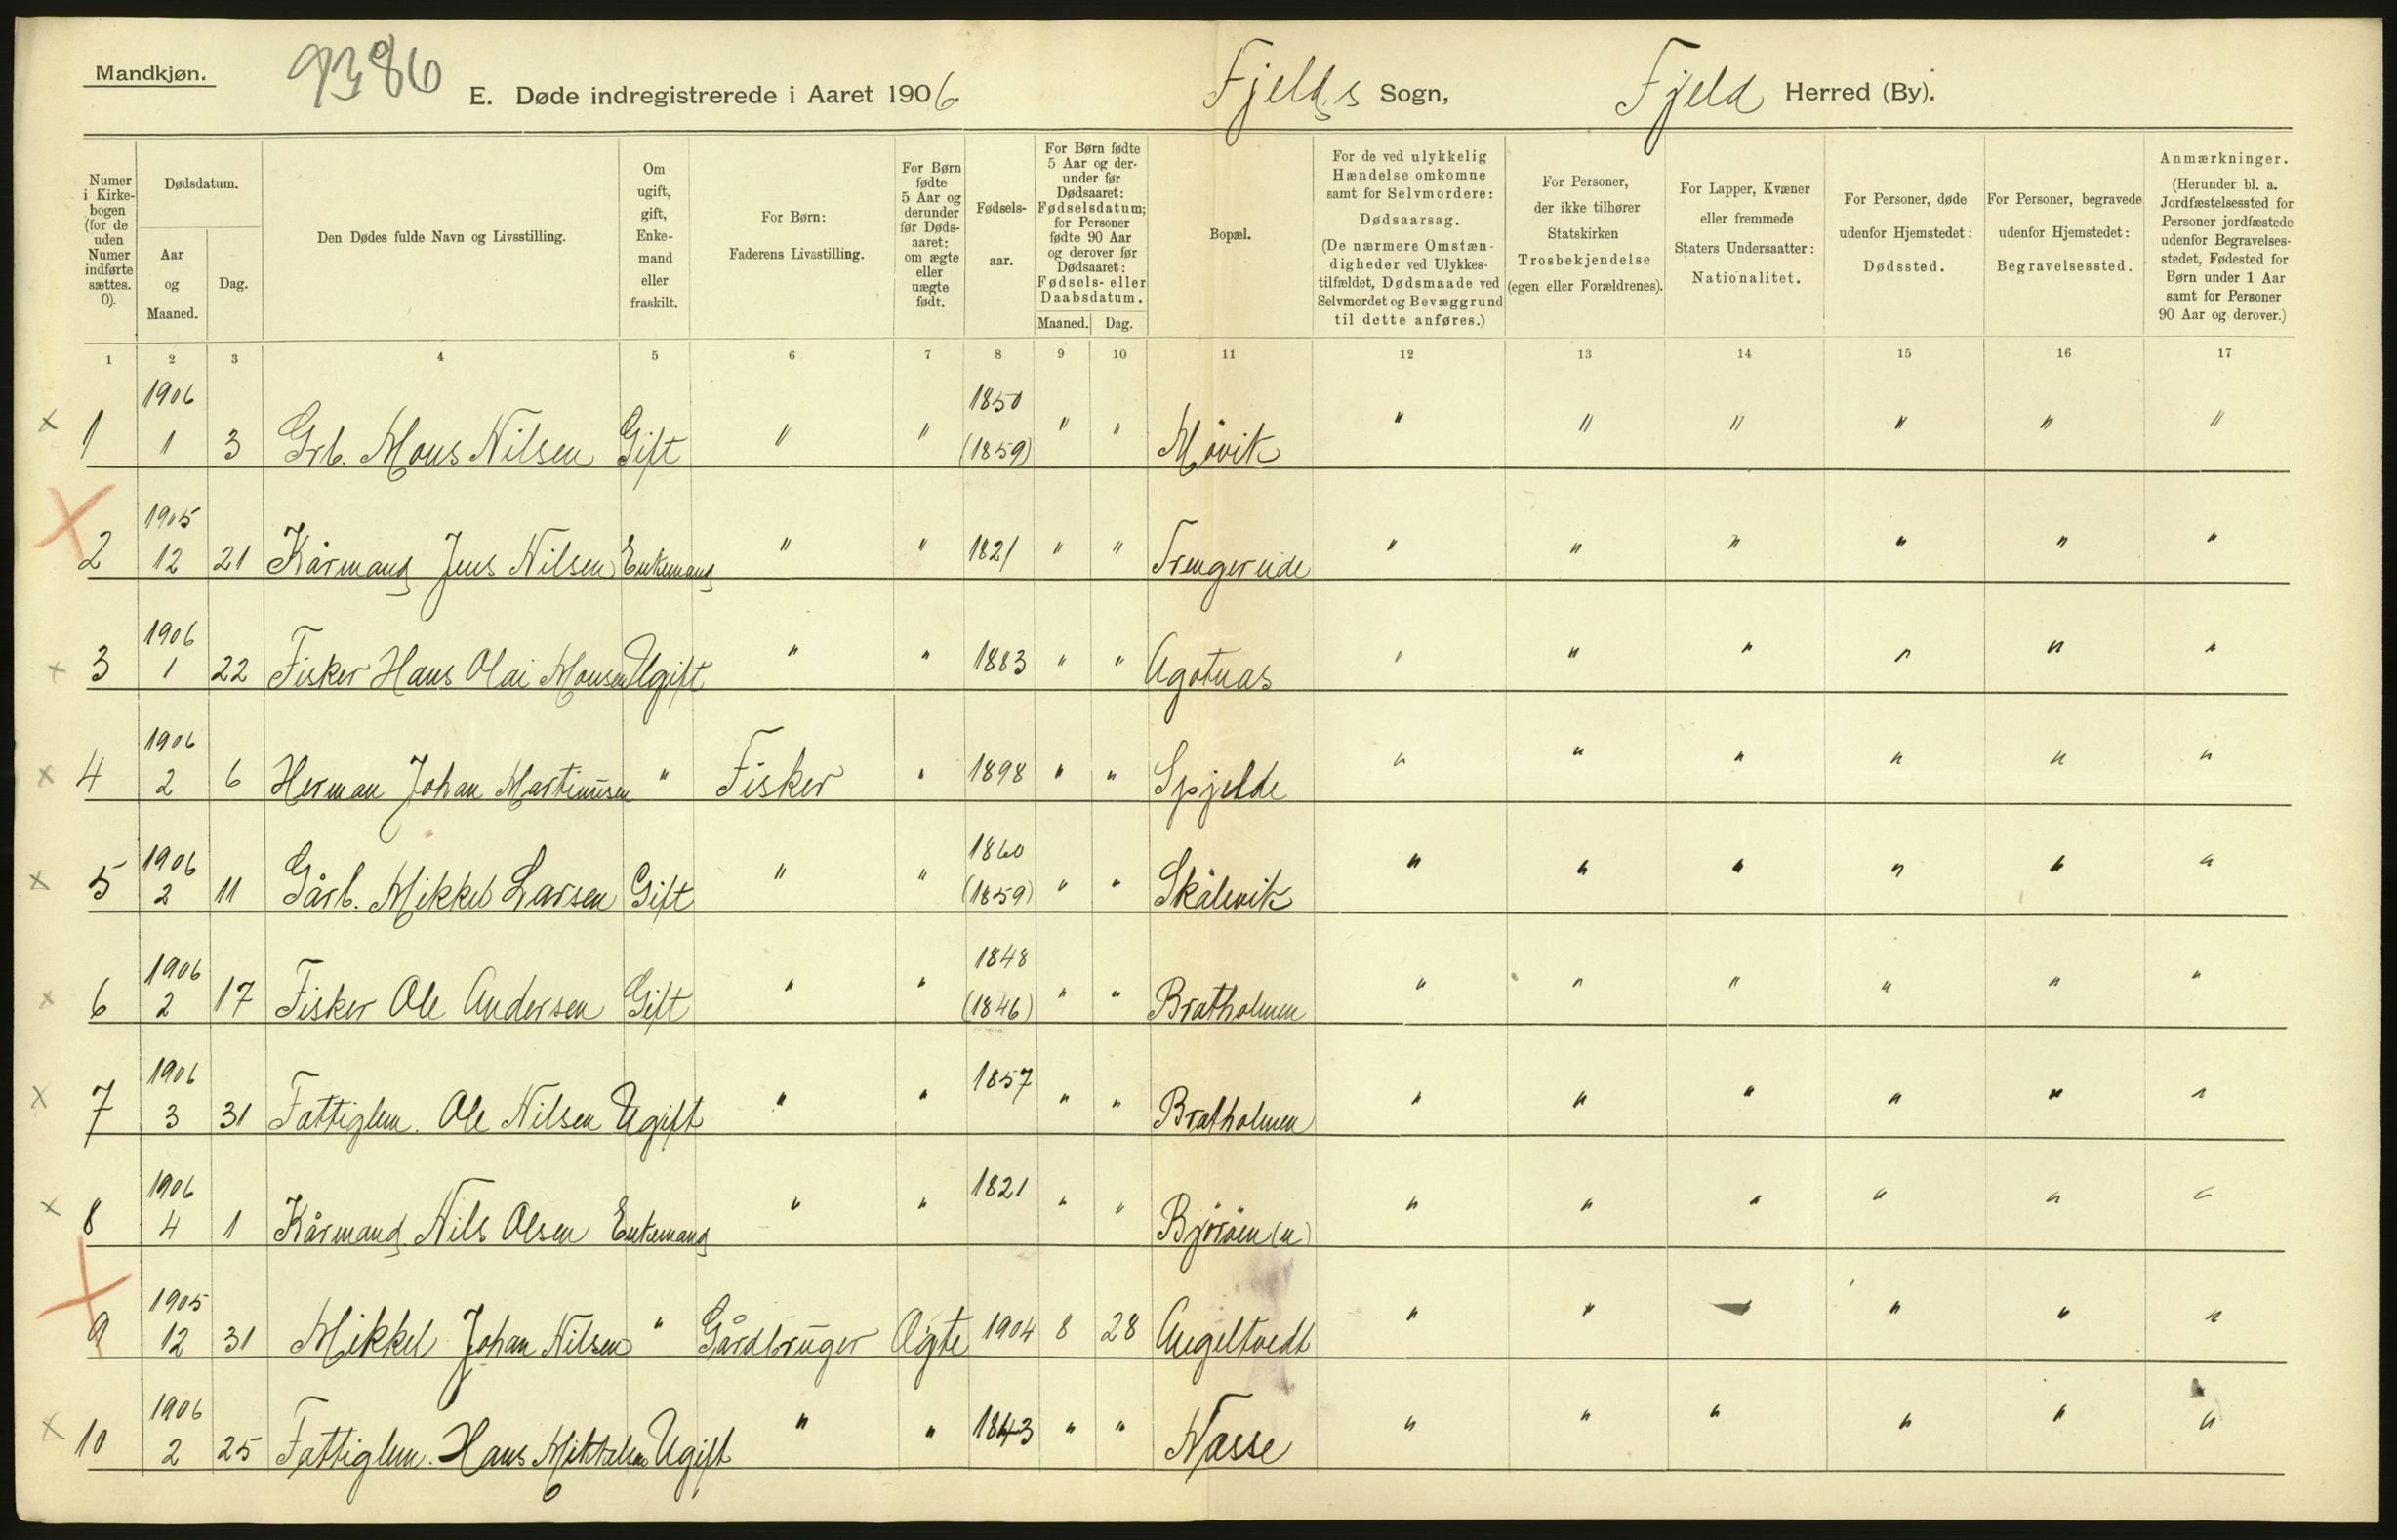 Mandkjøn.
9386
E. Døde indregistrerede i Aaret 1906.
Fjelds Sogn,
Fjeld Herred (By).
Numer i Kirke-bogen (for de uden Numer indførte sættes. 0).
Dødsdatum.
Aar og Maaned.
Dag.
Den Dødes fulde Navn og Livsstilling.
Om ugift, gift, Enke-mand eller fraskilt.
For Børn: Faderens Livsstilling.
For Børn fødte 5 Aar og derunder før Døds-aaret: om ægte eller uægte født.
Fødsels-aar.
For Børn fødte 5 Aar og der-under før Dødsaaret: Fødselsdatum; for Personer fødte 90 Aar og derover før Dødsaaret: Fødsels- eller Daabsdatum.
Maaned. Dag.
Bopæl.
For de ved ulykkelig Hændelse omkomne samt for Selvmordere: Dødsaarsag. (De nærmere Omstæn-digheder ved Ulykkes-tilfældet, Dødsmaade ved Selvmordet og Bevæggrund til dette anføres.)
For Personer, der ikke tilhører Statskirken Trosbekjendelse (egen eller Forældrenes).
For Lapper, Kvæner eller fremmede Staters Undersaatter: Nationalitet.
For Personer, døde udenfor Hjemstedet: Dødssted.
For Personer, begravede udenfor Hjemstedet: Begravelsessted.
Anmærkninger. (Herunder bl. a. Jordfæstelsessted for Personer jordfæstede udenfor Begravelses-stedet, Fødested for Børn under 1 Aar samt for Personer 90 Aar og derover.)
1 2 3 4 5 6 7 8 9 10 11 12 13 14 15 16 17
x 1 1906 1 3 Grb. Mons Nilsen Gift " " 1850 (1859) " " Måvik " " " " " "
X 2 1905 12 21 Kårmand Jens Nilsen Enkemand " " 1821 " " Trengereide " " " " " "
x 3 1906 1 22 Fisker Hans Olai Monsen Ugift " " 1883 " " Agotnas " " " " " "
x 4 1906 2 6 Herman Johan Martinusen " Fisker " 1898 " " Spjelde " " " " " "
x 5 1906 2 11 Gårb. Mikkel Larsen Gift " " 1860 (1859) " " Skålevik " " " " " "
x 6 1906 2 17 Fisker Ole Andersen Gift " " 1848 (1846) " " Bratholmen " " " " " "
x 7 1906 3 31 Fattiglem. Ole Nilsen Ugift " " 1857 " " Bratholmen " " " " " "
x 8 1906 4 1 Kårmand Nils Olsen Enkemand " " 1821 " " Björöen (n) " " " " " "
X 9 1905 12 31 Mikkel Johan Nilsen " Gårdbruger Ægte 1904 8 28 Angeltvedt " " " " " "
x 10 1906 2 25 Fattiglem. Hans Mikkelsen Ugift " " 1843 " " Næsse " " " " " "